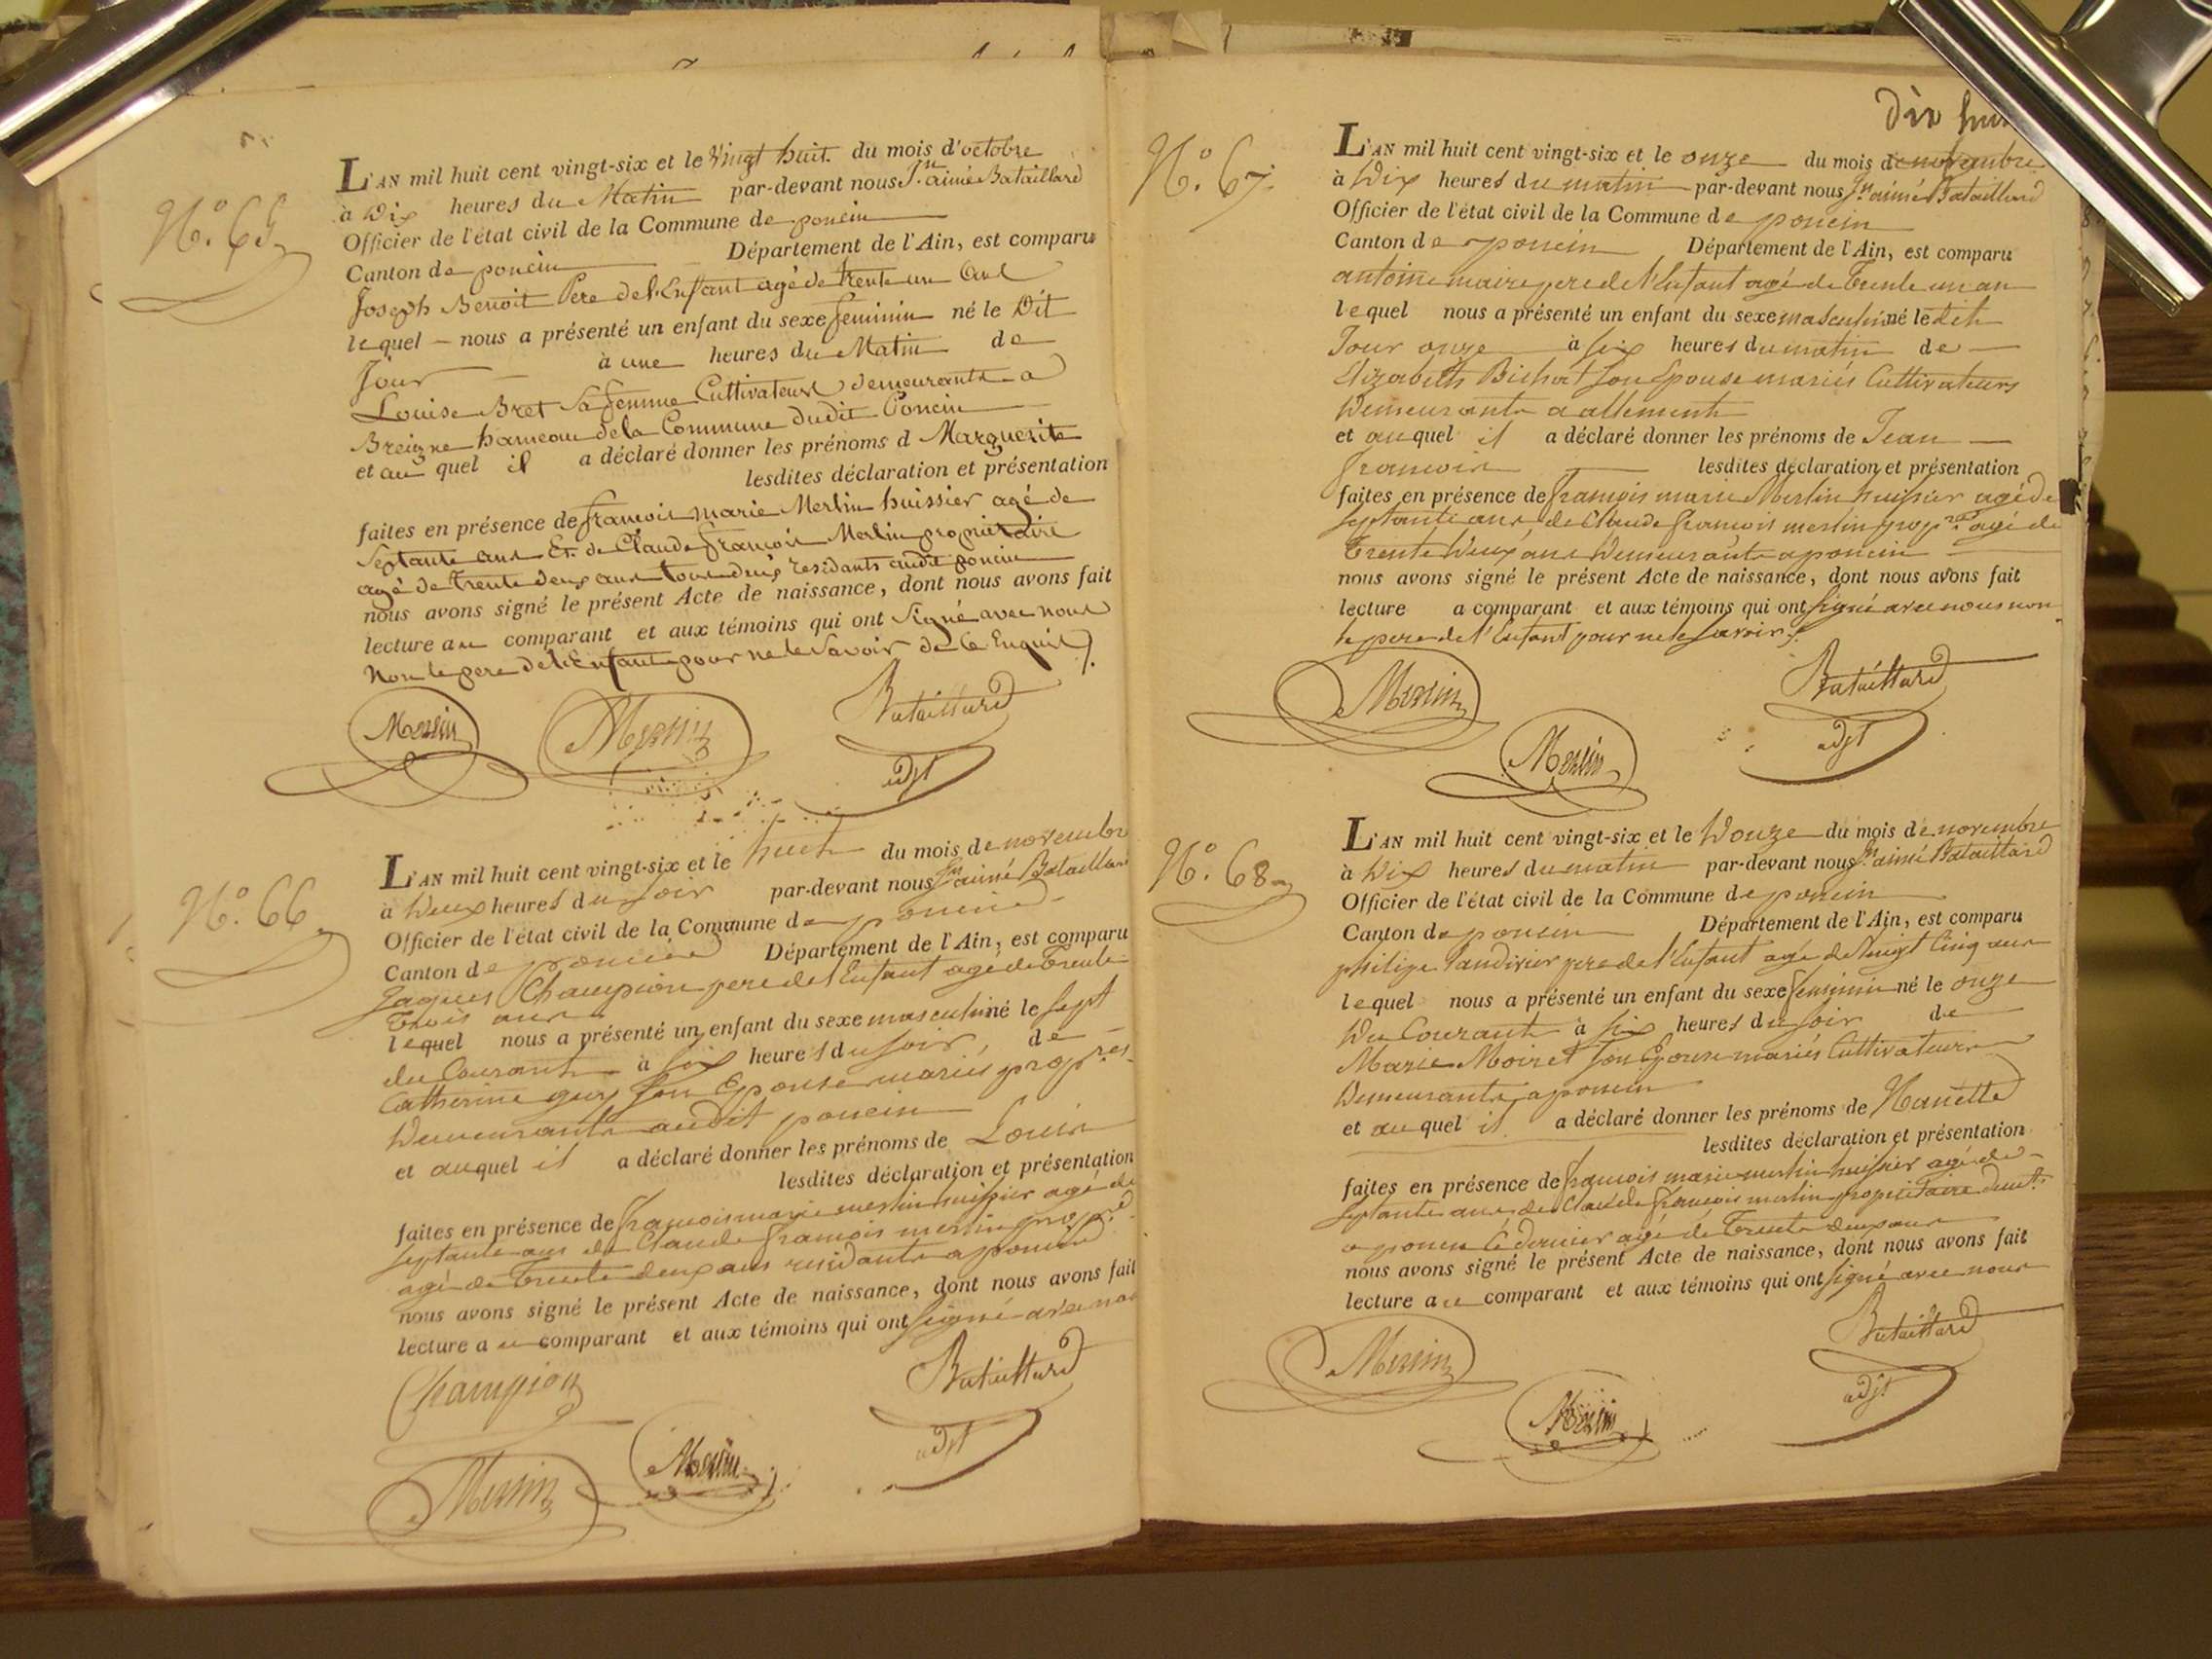 N.o 65
L'AN mil huit cent vingt-six et le Vingt huit du mois d'octobre
à Dix heures du Matin par-devant nous J.n aimé Bataillard
Officier de l'état civil de la Commune de poncin
Canton de poncin Département de l'Ain, est comparu
Joseph Benoit Pere de l'Enfant agé de trente un Ans
lequel nous a présenté un enfant du sexe feminin né le Dit
Jour à une heures du Matin de
Louise Bret Sa femme Cultivateurs demeurants a
Breigne hameau de la Commune dudit Poncin
et au quel il a déclaré donner les prénoms d Marguerite
lesdites déclaration et présentation
faites en présence de francois marie Merlin huissier agé de
Septante ans Et de Claude francois Merlin propriétaire
agé de trente deux ans tous deux residants audit poncin
nous avons signé le présent Acte de naissance, dont nous avons fait
lecture au comparant et aux témoins qui ont Signé avec nous
Non le pere de l'Enfant pour ne le Savoir de Ce Enquis
Merlin Merlin Bataillard
adjt
N.o 66
L'AN mil huit cent vingt-six et le huit du mois de novembre
à Deux heures du soir par-devant nous J.n aimé Bataillard
Officier de l'état civil de la Commune de poncin
Canton de poncin Département de l'Ain, est comparu
Jaques Champion pere de l'Enfant agé de Trente
Trois ans
lequel nous a présenté un enfant du sexe masculin né le sept
du Courant à six heures du soir, de
Catherine guy Son Epouse mariés prop.res
Demeurants audit poncin
et auquel il a déclaré donner les prénoms de Louis
lesdites déclaration et présentation
faites en présence de francois marie merlin huissier agé de
septante ans de Claude francois merlin prop.re
agé de Trente deux ans residants a poncin
nous avons signé le présent Acte de naissance, dont nous avons fait
lecture au comparant et aux témoins qui ont signé avec nous
Champion Bataillard
Merlin Merlin adjt
dix huit
N.o 67
L'AN mil huit cent vingt-six et le onze du mois de novembre
à Dix heures du matin par-devant nous J.n aimé Bataillard
Officier de l'état civil de la Commune de poncin
Canton de poncin Département de l'Ain, est comparu
antoine maire pere de l'Enfant agé de Trente un an
lequel nous a présenté un enfant du sexe masculin né le dit
Jour onze à six heures du matin de
Elizabeth Bichat son Epouse mariés Cultivateurs
Demeurants a allement
et auquel il a déclaré donner les prénoms de Jean
francois lesdites déclaration et présentation
faites en présence de francois marie Merlin huissier agé de
septante ans de Claude francois merlin prop.re agé de
Trente Deux ans Demeurants a poncin
nous avons signé le présent Acte de naissance, dont nous avons fait
lecture a comparant et aux témoins qui ont signé avec nous non
le pere de l'Enfant pour ne le savoir
Merlin Merlin Bataillard
adjt
N.o 68
L'AN mil huit cent vingt-six et le Douze du mois de novembre
à Dix heures du matin par-devant nous J.n aimé Bataillard
Officier de l'état civil de la Commune de poncin
Canton de poncin Département de l'Ain, est comparu
philipe pere de l'Enfant agé de Vingt Cinq ans
lequel nous a présenté un enfant du sexe feminin né le onze
Du Courant à six heures du soir de
Marie Moiret son Epouse mariés Cultivateurs
Demeurants a poncin
et auquel il a déclaré donner les prénoms de Nanette
lesdites déclaration et présentation
faites en présence de francois marie merlin huissier agé de
septante ans de Claude francois merlin propriétaire demt
a poncin Ce dernier agé de Trente deux ans
nous avons signé le présent Acte de naissance, dont nous avons fait
lecture au comparant et aux témoins qui ont signé avec nous
Merlin Merlin Bataillard
adjt